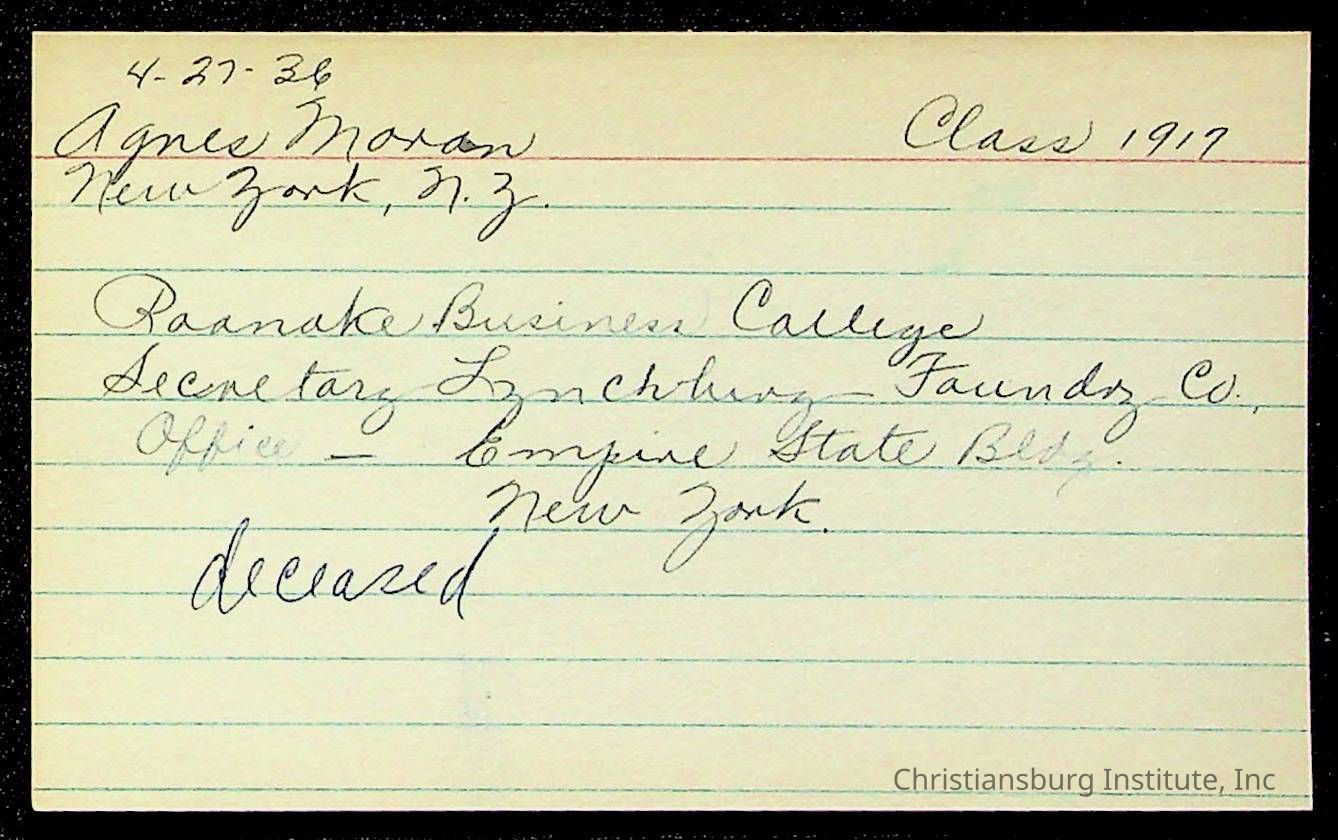 4-27-36
Agnes Moran
Class 1917
New York, N.Y.
Roanoke Business College
Secretary Lynchburg Foundry Co.,
Office — Empire State Bldg.
New York.
deceased
Christiansburg Institute, Inc